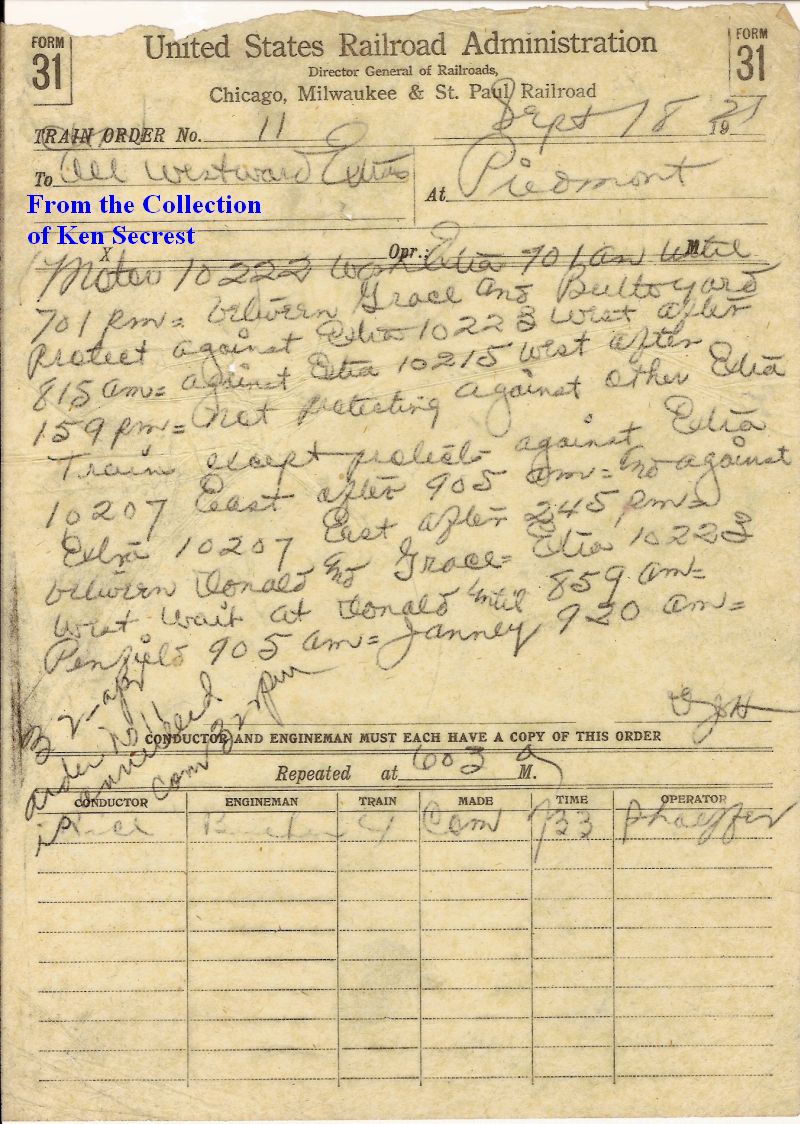 FORM 31
United States Railroad Administration
FORM 31
Director General of Railroads,
Chicago, Milwaukee & St. Paul Railroad
Sept 18 1921
TRAIN ORDER No. 11
To All Westward Extras
At Piedmont
From the Collection
of Ken Secrest
X Opr.: M.
Motor 10222 work Extra 701 am until
701 pm = between Grace and Butte Yard
protect against Extra 10223 West after
815 am = against Extra 10215 West after
159 pm = not protecting against other Extra
Train except protects against Extra
10207 East after 905 am = and against
Extra 10207 East after 245 pm =
between Donald and Grace = Extra 10223
West Wait at Donald until 859 am =
Penfield 905 am = Janney 920 am =
order No 11
annulled
com
CONDUCTOR AND ENGINEMAN MUST EACH HAVE A COPY OF THIS ORDER
Repeated at 603 a M.
CONDUCTOR ENGINEMAN TRAIN MADE TIME OPERATOR
Com 733 Shaeffer